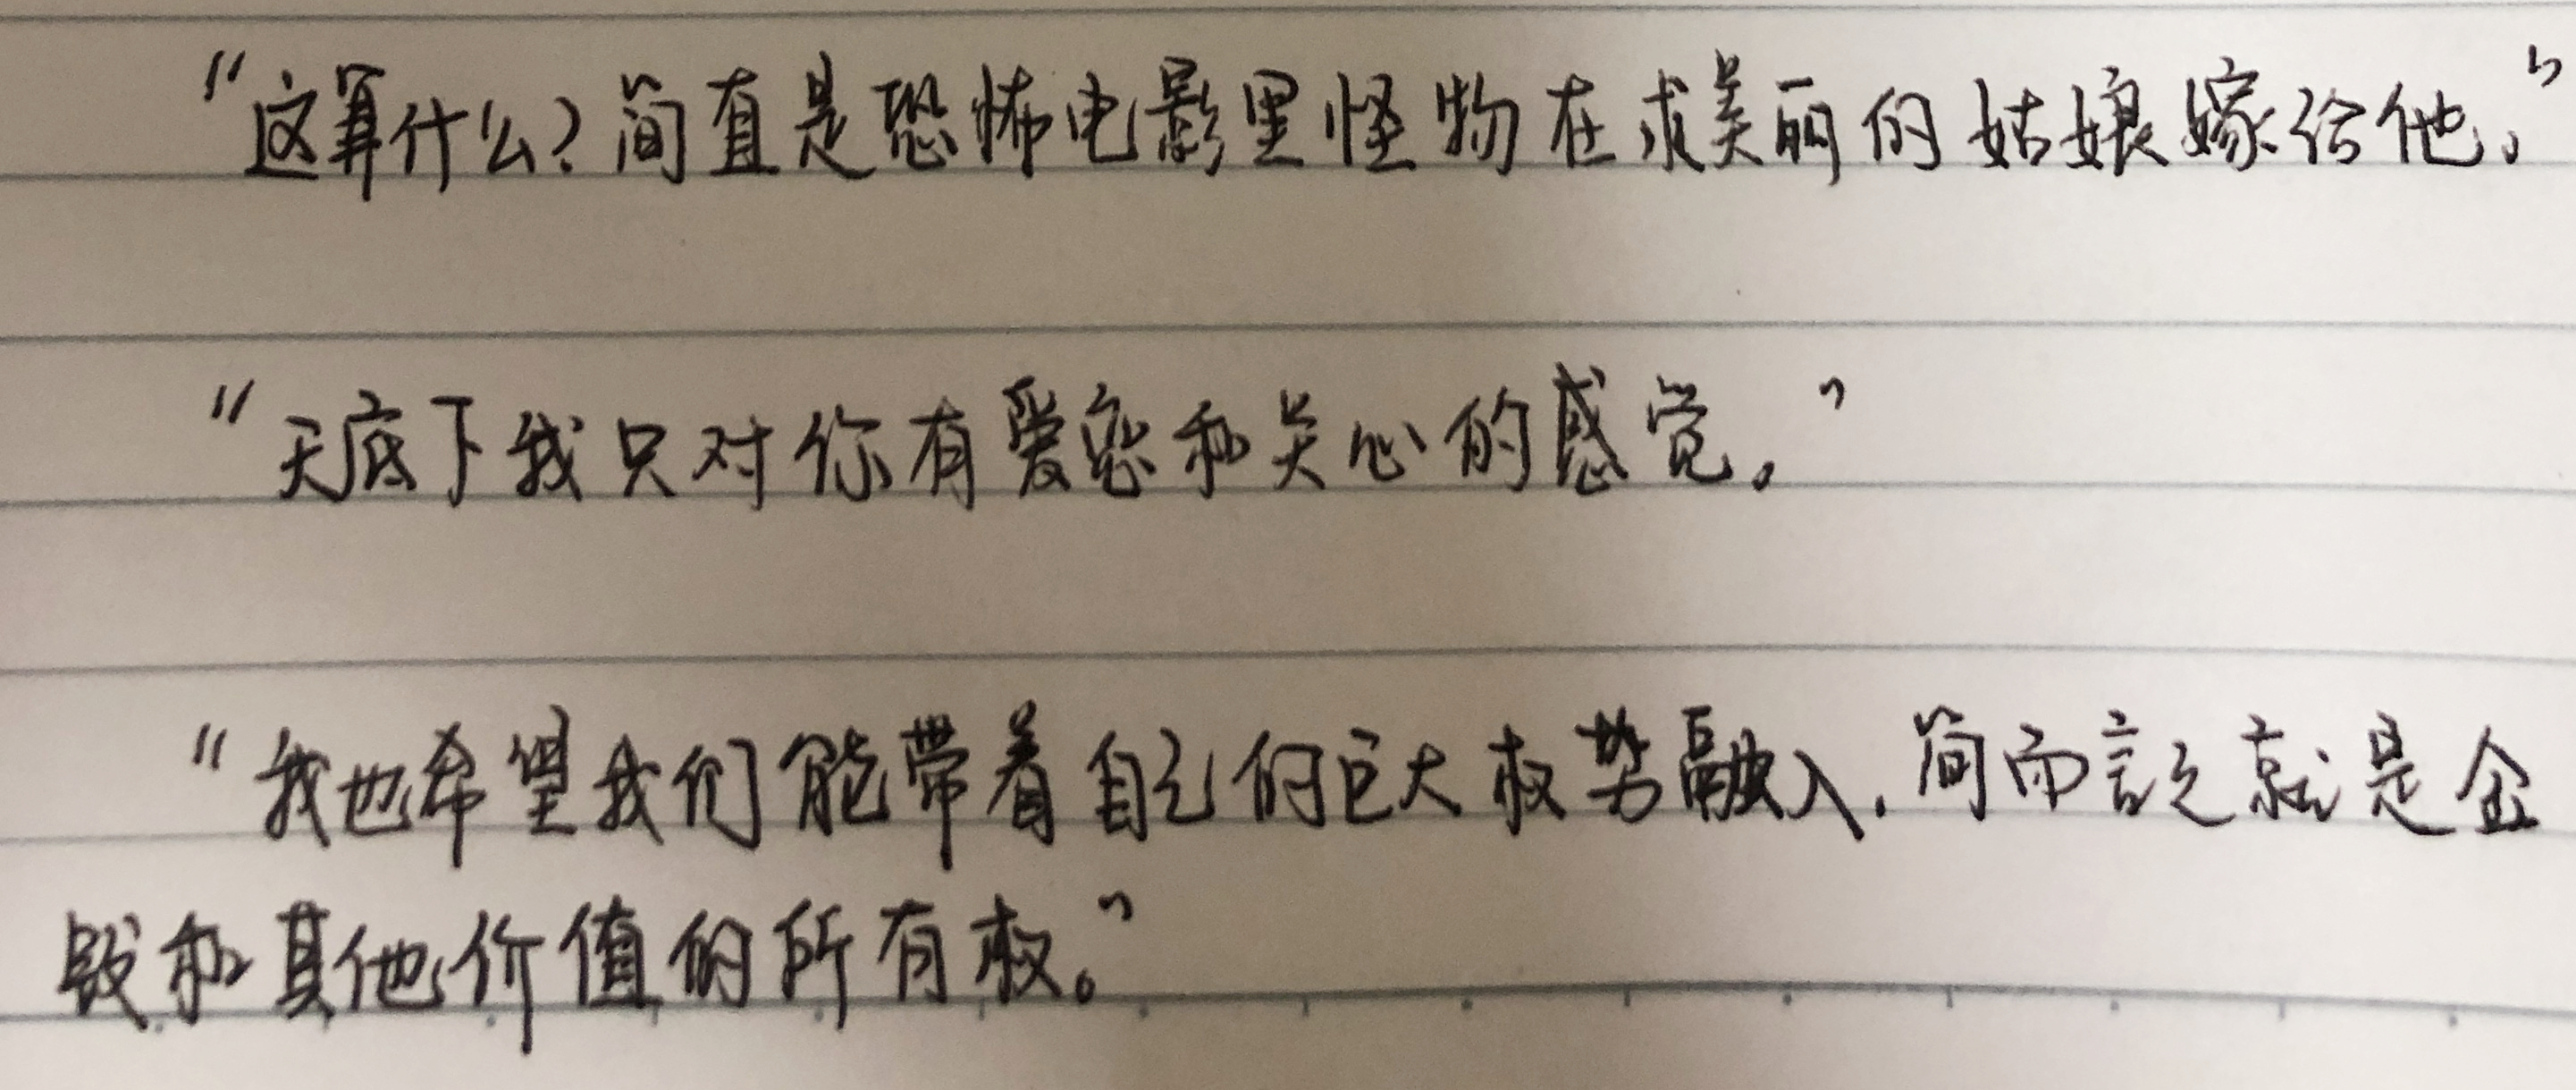 “这算什么？简直是恐怖电影里怪物在求美丽的姑娘嫁给他。”
“天底下我只对你有爱恋和关心的感觉。”
“我也希望我们能带着自己的巨大权势融入，简而言之就是金
钱和其他价值的所有权。”